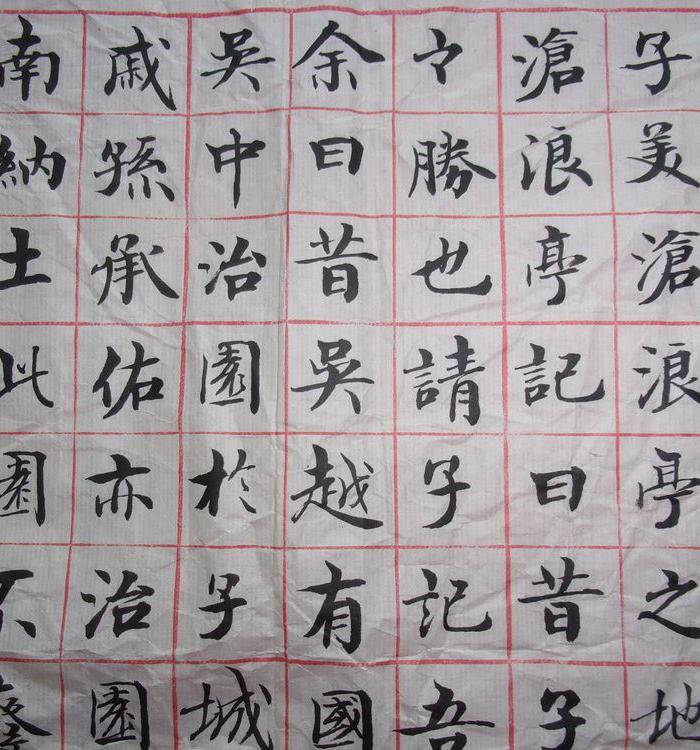 子美滄浪亭之地
滄浪亭記曰昔子
々勝也請子記吾
余曰昔吳越有國
吳中治園於子城
戚孫承佑亦治園
南納土此園不